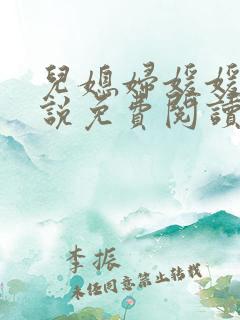 兒媳婦媛媛
說免費閱讀
李振
未经同意禁止转载